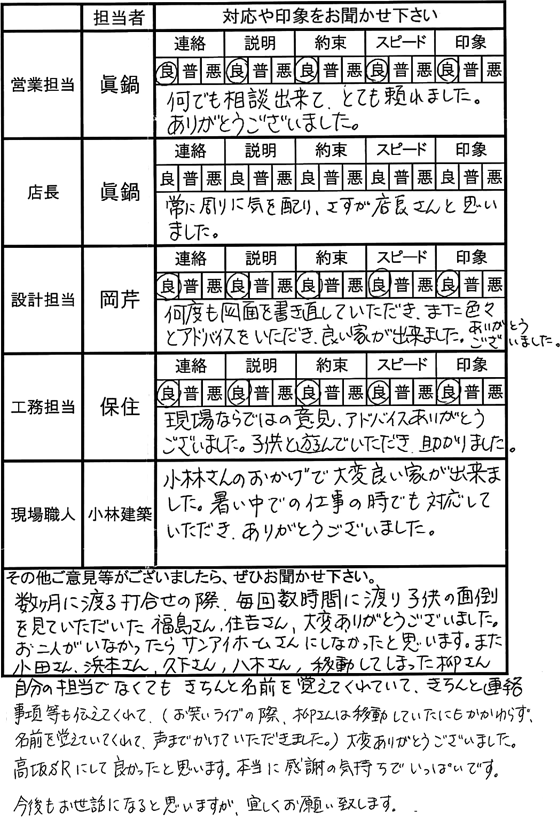 担当者 対応や印象をお聞かせ下さい
営業担当 眞鍋
連絡 説明 約束 スピード 印象
良 普 悪 良 普 悪 良 普 悪 良 普 悪 良 普 悪
何でも相談出来て、とても頼れました。
ありがとうございました。
店長 眞鍋
連絡 説明 約束 スピード 印象
良 普 悪 良 普 悪 良 普 悪 良 普 悪 良 普 悪
常に周りに気を配り、さすが店長さんと思い
ました。
設計担当 岡芹
連絡 説明 約束 スピード 印象
良 普 悪 良 普 悪 良 普 悪 良 普 悪 良 普 悪
何度も図面を書き直していただき、また色々
とアドバイスをいただき、良い家が出来ました。ありがとう
ございました。
工務担当 保住
連絡 説明 約束 スピード 印象
良 普 悪 良 普 悪 良 普 悪 良 普 悪 良 普 悪
現場ならではの意見、アドバイスありがとう
ございました。子供と遊んでいただき、助かりました。
現場職人 小林建築
小林さんのおかげで大変良い家が出来ま
した。暑い中での仕事の時でも対応して
いただき、ありがとうございました。
その他ご意見等がございましたら、ぜひお聞かせ下さい。
数ヶ月に渡る打合せの際、毎回数時間に渡り子供の面倒
を見ていただいた福島さん、住吉さん、大変ありがとうございました。
お二人がいなかったらサンアイホームさんにしなかったと思います。また
小田さん、浜本さん、久下さん、八木さん、移動してしまった柳さん
自分の担当でなくてもきちんと名前を覚えてくれていて、きちんと連絡
事項等も伝えてくれて、(お笑いライブの際、柳さんは移動していたにもかかわらず、
名前を覚えていてくれて、声までかけていただきました。)大変ありがとうございました。
高坂SRにして良かったと思います。本当に感謝の気持ちでいっぱいです。
今後もお世話になると思いますが、宜しくお願い致します。